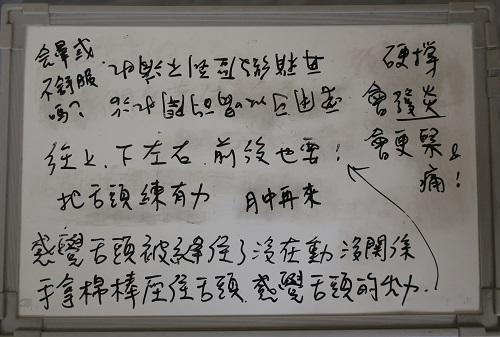 會暈或
不舒服
嗎?
硬撐
會發炎
會更緊&
痛!
往上、下左右、前後也要!
把舌頭練有力 月中再來
感覺舌頭被縫住了沒在動 沒關係
手拿棉棒壓住舌頭. 感覺舌頭的出力.